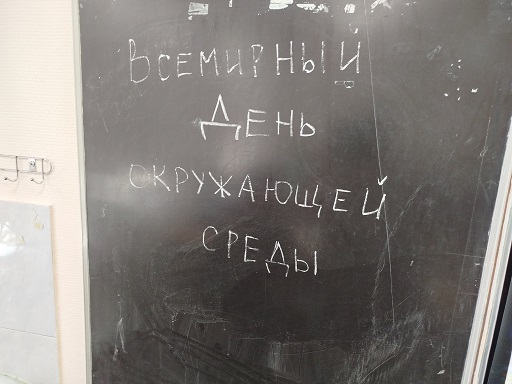 ВСЕМИРНЫЙ
ДЕНЬ
ОКРУЖАЮЩЕЙ
СРЕДЫ